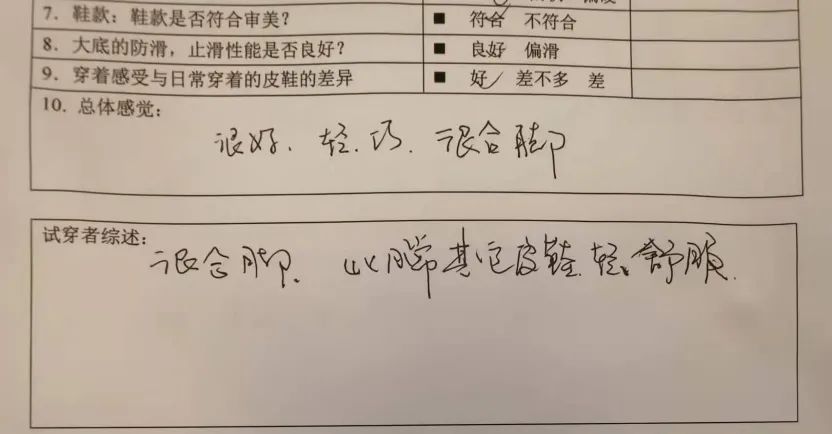 7. 鞋款：鞋款是否符合审美？ ■ 符合 不符合
8. 大底的防滑，止滑性能是否良好？ ■ 良好 偏滑
9. 穿着感受与日常穿着的皮鞋的差异 ■ 好 差不多 差
10. 总体感觉：
很好、轻、巧、很合脚
试穿者综述：
很合脚、比 其它皮鞋轻、舒服.